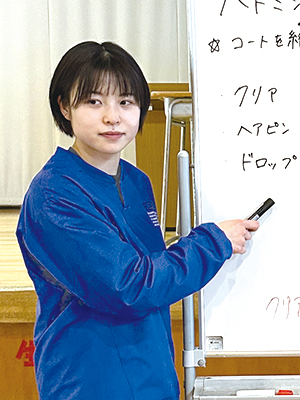 バドミン
☆ コートを
クリア
ヘアピン
ドロップ
クリア
生